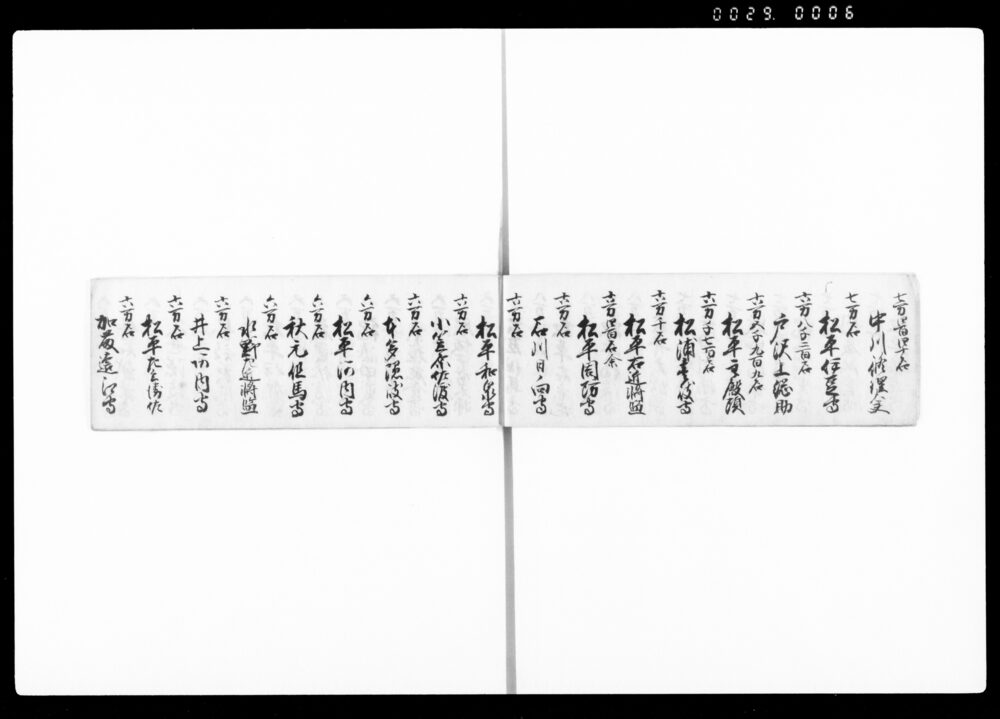 0029. 0006
七万四百四十石
中川修理大夫
七万石
松平伊豆守
六万八千二百石
戸沢上総助
六万五千九百九石
松平主殿頭
六万千七百石
松浦壱岐守
六万千石
松平右近将監
六万四百石余
松平周防守
六万石
石川日向守
六万石
松平和泉守
六万石
小笠原佐渡守
六万石
本多隠岐守
六万石
松平河内守
六万石
秋元但馬守
六万石
水野左近将監
六万石
井上河内守
六万石
松平左兵衛佐
六万石
加藤遠江守